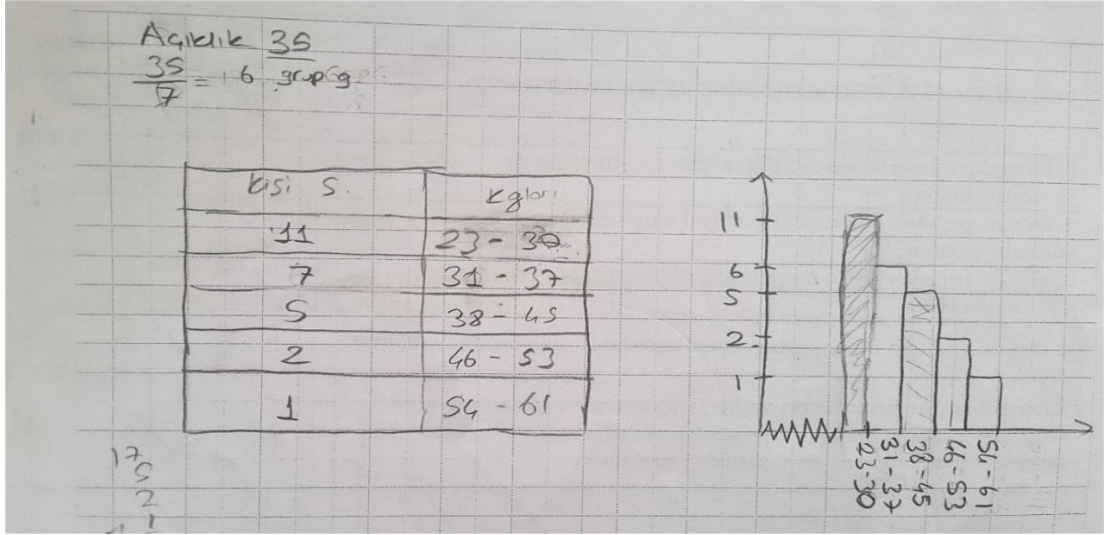 Açıklık 35
35
7 = 6 grup g
kişi s. kgları
11 23 - 30
7 31 - 37
5 38 - 45
2 46 - 53
1 54 - 61
11
6
5
2
1
23-30
31-37
38-45
46-53
54-61
17
5
2
1